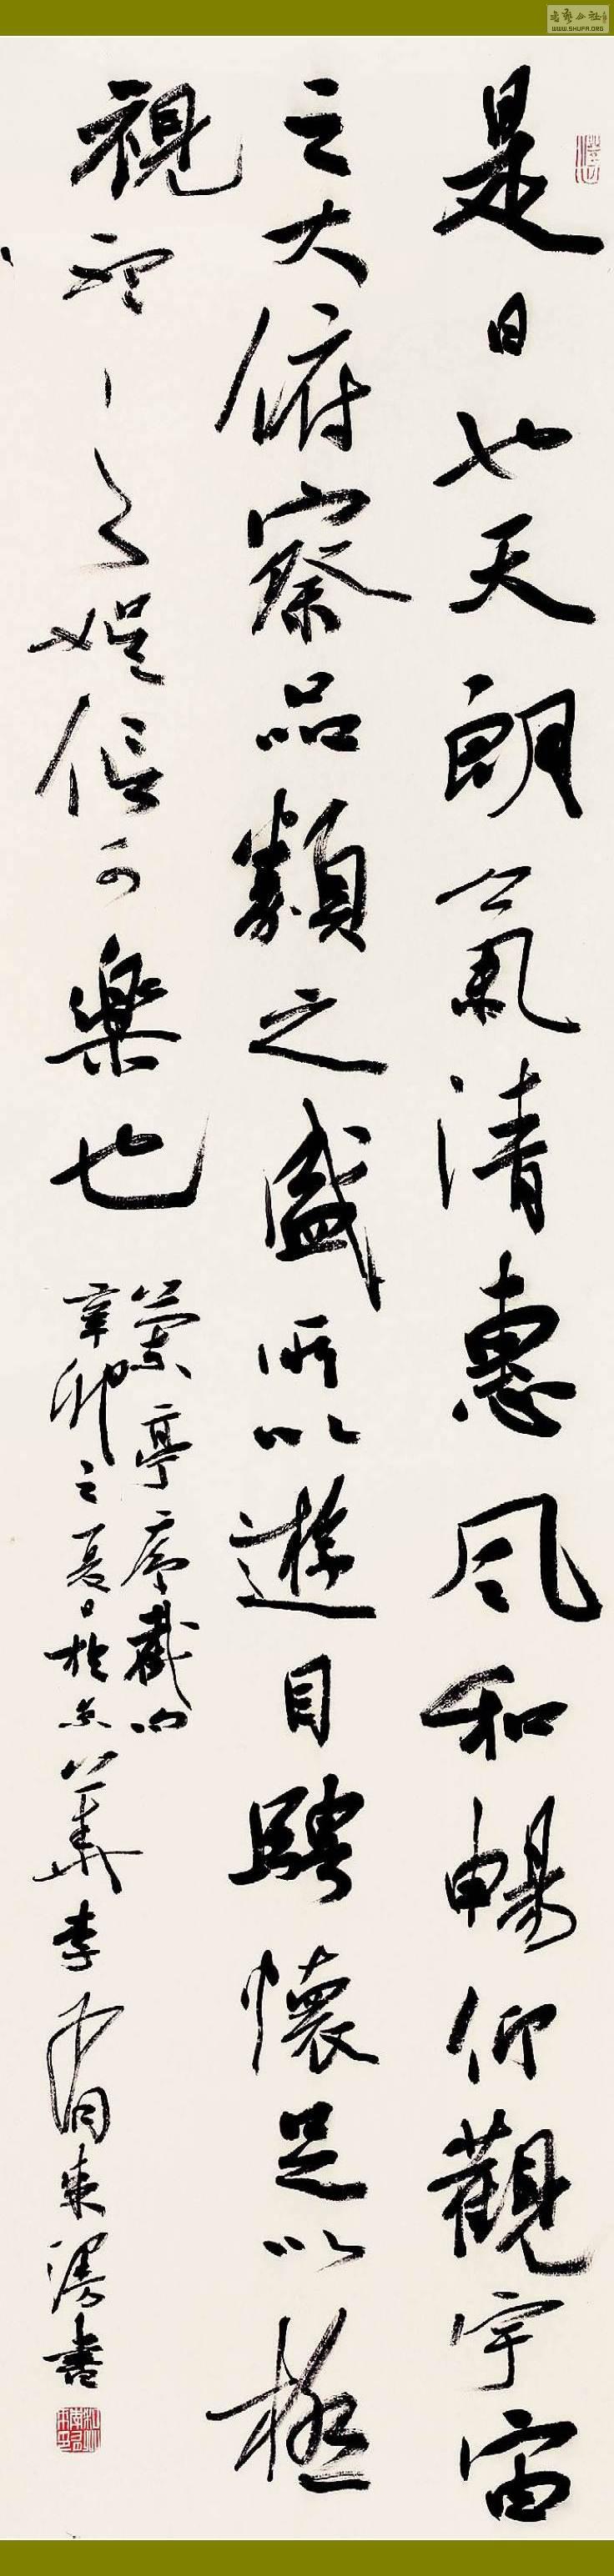 書藝公社
WWW.SHUFA.ORG
是日也天朗氣清惠風和暢仰觀宇宙
之大俯察品類之盛所以遊目騁懷足以極
視聽之娛信可樂也
蘭亭序截句
辛卯之夏日於京華李有來漫書